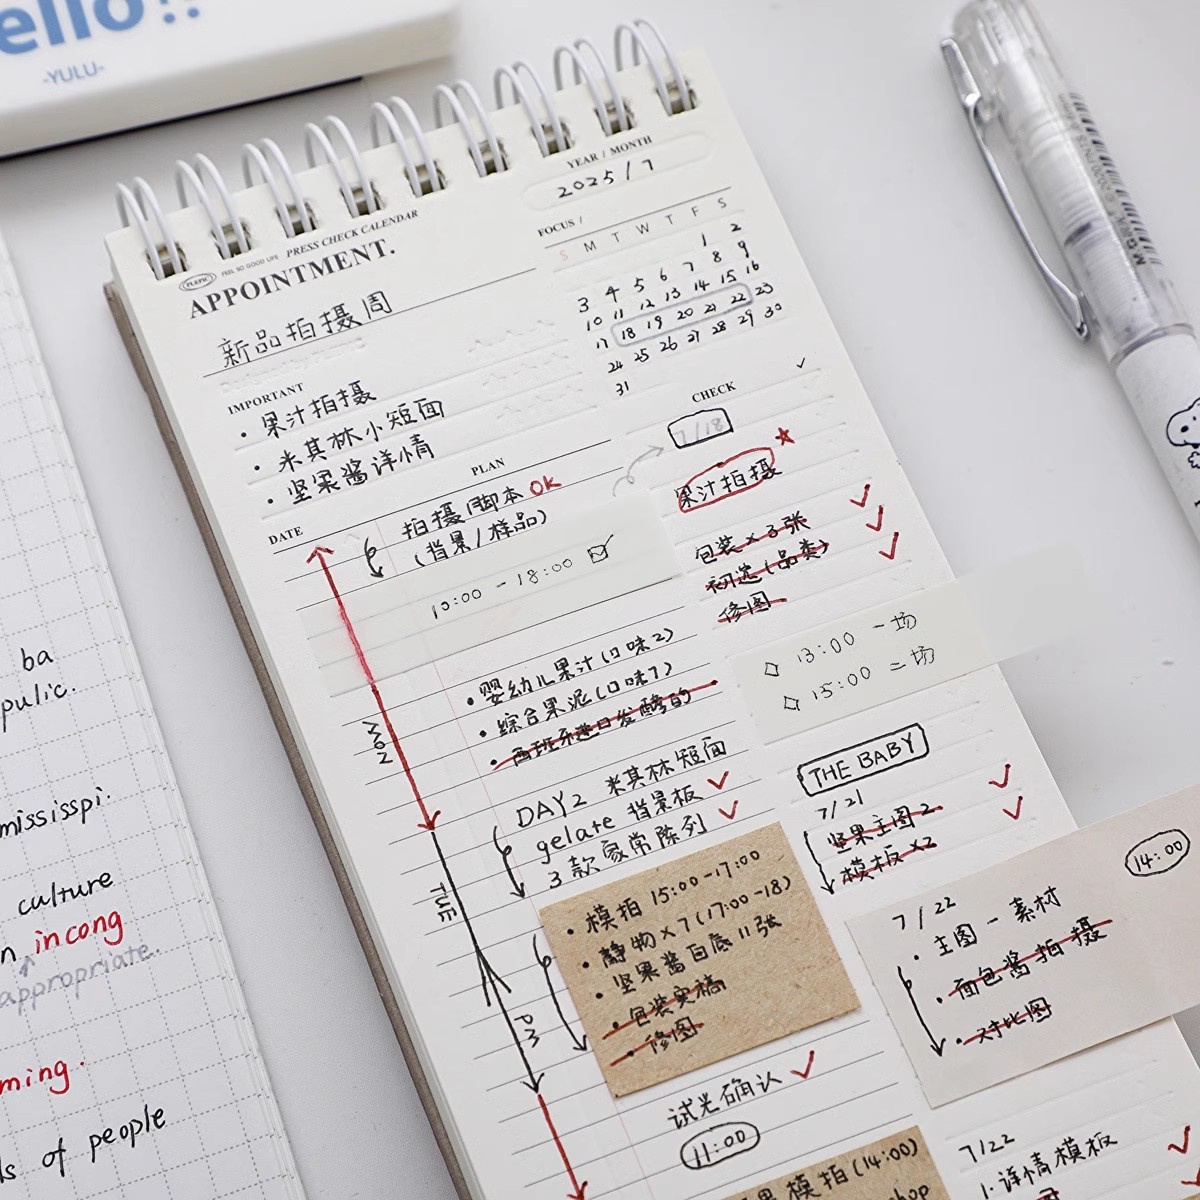 ello!!
-YULU-
PLEPIC FEEL SO GOOD LIFE PRESS CHECK CALENDAR
APPOINTMENT.
新品拍摄周
YEAR / MONTH
2025/7
FOCUS /
S M T W T F S
1 2
3 4 5 6 7 8 9
10 11 12 13 14 15 16
17 18 19 20 21 22 23
24 25 26 27 28 29 30
31
IMPORTANT
• 果汁拍摄
• 米其林小短面
• 坚果酱详情
DATE
PLAN
拍摄脚本 OK
(背景/样品)
10:00 - 18:00
• 婴幼儿果汁(口味2)
• 综合果泥(口味1)
• 西班牙进口发酵的
MON
DAY2 米其林短面
gelate 背景板
3款家常陈列
TUE
• 模拍 15:00-17:00
• 静物×7(17:00-18)
• 坚果酱白底11张
• 包装实稿
• 修图
PM
试光确认
11:00
果模拍(14:00)
hop
CHECK
7/18
果汁拍摄
包装×3张
初选(品类)
修图
13:00 一场
15:00 二场
THE BABY
7/21
坚果主图2
模板×2
14:00
7/22
• 主图-素材
• 面包酱拍摄
• 对比图
7/22
1.详情模板
ba
pulic.
mississpi.
culture
n incong
appropriate.
ming.
ls of people
M&G